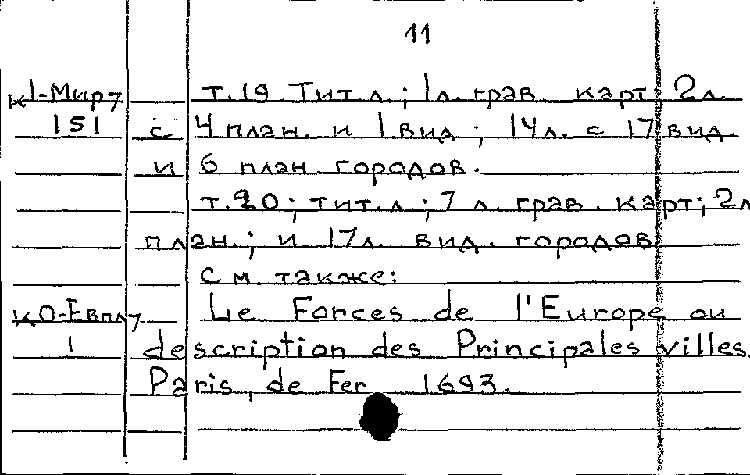 11
К1-Мир7 т.19 Тит.л.; 1л. грав. карт, 2л.
151 с 4 план. и 1 вид; 14л. с 17 вид.
и 6 план городов.
т.20; тит.л.; 7 л. грав. карт; 2л
план.; и 17л. вид. городов
см. также:
К0-Евпл7 Le Forces de l'Europe ou
1 description des Principales villes.
Paris, de Fer 1693.